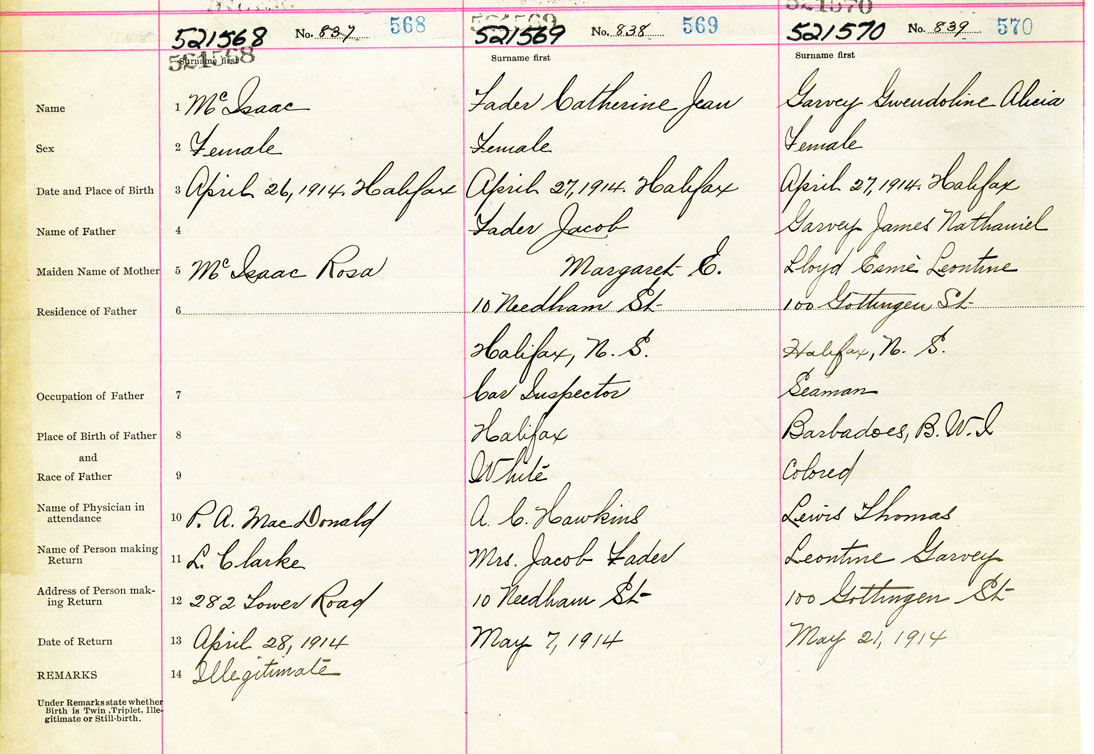 521568 No. 837 568 521569 No. 838 569 521570 No. 839 570
521568 Surname first Surname first Surname first
Name 1 McIsaac Fader Catherine Jean Garvey Gwendoline Alicia
Sex 2 Female Female Female
Date and Place of Birth 3 April 26, 1914. Halifax April 27, 1914. Halifax April 27, 1914. Halifax
Name of Father 4 Fader Jacob Garvey James Nathaniel
Maiden Name of Mother 5 McIsaac Rosa Margaret E. Lloyd Esmè Leontine
Residence of Father 6 10 Needham St 100 Gottingen St
Halifax, N. S. Halifax, N. S.
Occupation of Father 7 Car Inspector Seaman
Place of Birth of Father 8 Halifax Barbadoes, B. W. I
and
Race of Father 9 White Colored
Name of Physician in
attendance 10 P. A. MacDonald A. C. Hawkins Lewis Thomas
Name of Person making
Return 11 L. Clarke Mrs. Jacob Fader Leontine Garvey
Address of Person mak-
ing Return 12 282 Tower Road 10 Needham St 100 Gottingen St
Date of Return 13 April 28, 1914 May 7, 1914 May 21, 1914
REMARKS 14 Illegitimate
Under Remarks state whether
Birth is Twin, Triplet, Ille-
gitimate or Still-birth.